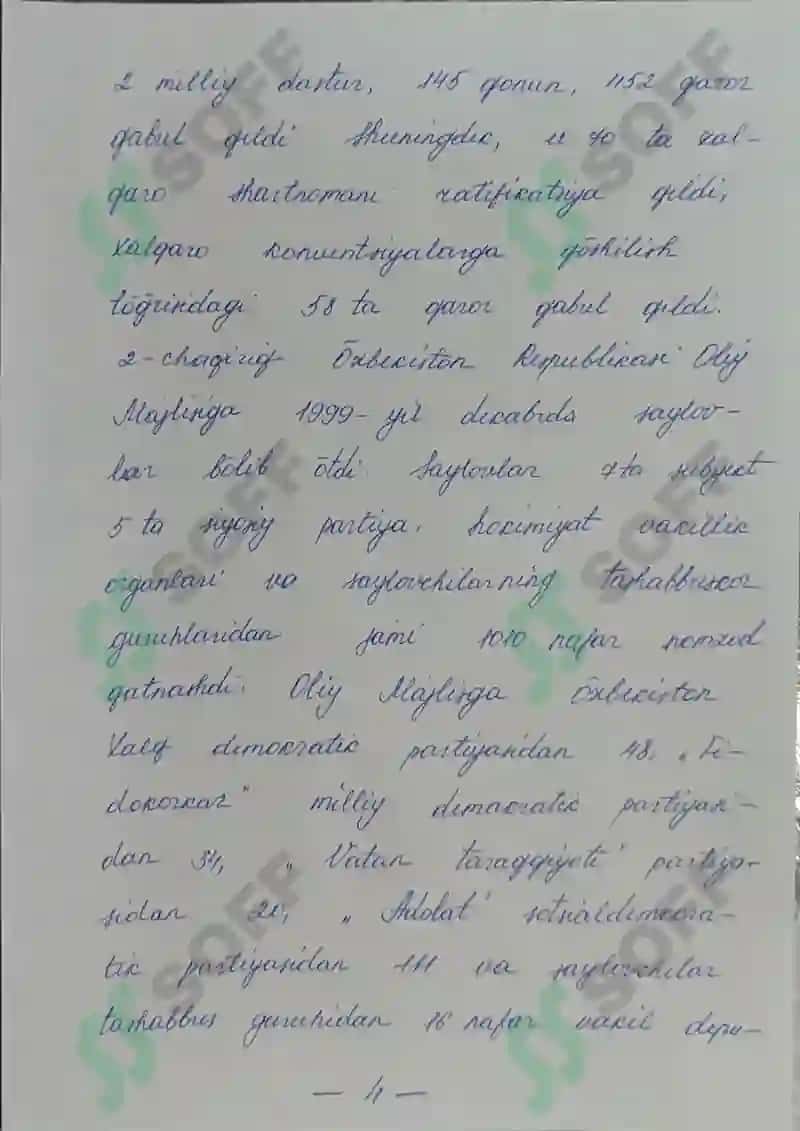 2 milliy dastur, 145 qonun, 1152 qaror
qabul qildi Shuningdek, u 70 ta xal-
qaro shartnomani ratifikatsiya qildi,
Xalqaro konventsiyalarga qōshilish
tōğrisidagi 58 ta qaror qabul qildi.
2-chaqiriq Ōzbekiston Respublikasi Oliy
Majlisiga 1999-yil dekabrda saylov-
lar bōlib ōtdi Saylovlar 7 ta subyekt
5 ta siyosiy partiya, hokimiyat vakillik
organlari va saylovchilarning tashabbuskor
guruhlaridan jami 1010 nafar nomzod
qatnashdi. Oliy Majlisga Ōzbekiston
Xalq demokratik partiyasidan 48, „Fi-
dokorlar" milliy demokratik partiyasi-
dan 34, „Vatan taraqqiyoti" partiya-
sidan 20, „Adolat" sotsialdemokra-
tik partiyasidan 11 va saylovchilar
tashabbus guruhidan 16 nafar vakil depu-
— 4 —
SOFF
SOFF
SOFF
SOFF
SOFF
SOFF